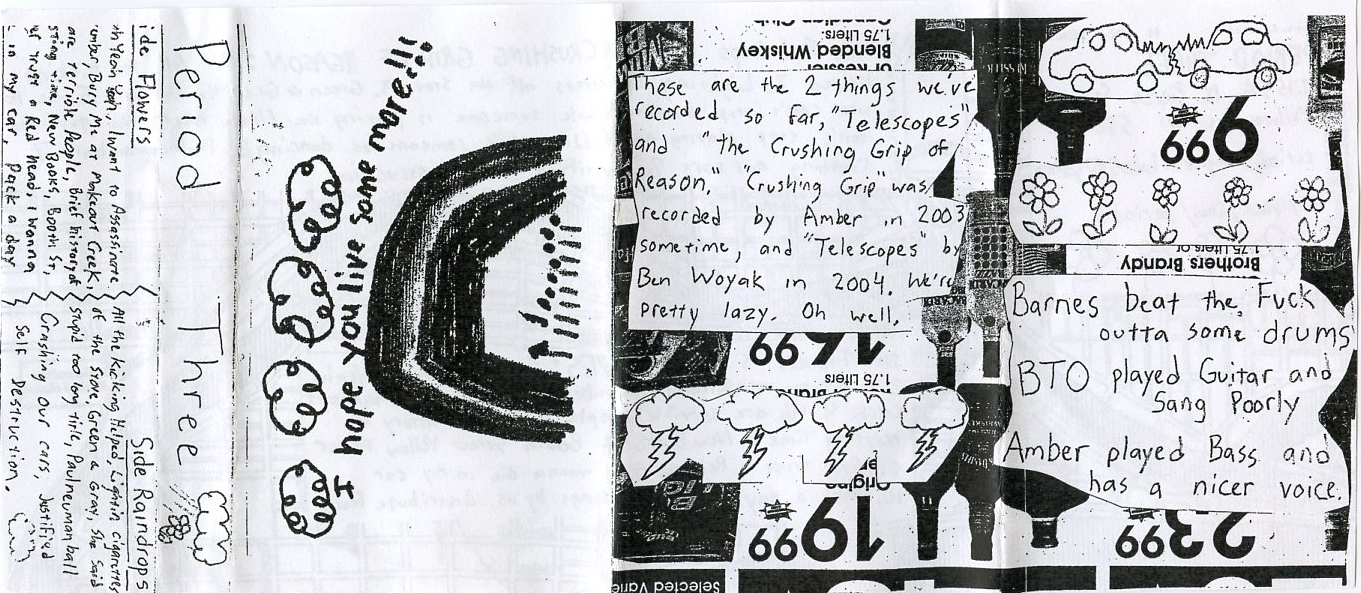 Side Flowers
oh yeah yeah, I want to Assassinate
number, Bury Me at Makeout Creek,
are terrible People, Brief history of
strong time, New Books, Booth St,
a Red head, wanna
in my car, Pack a day!
Side Raindrops
All the kicking Helped, Light'n cigarettes
of the stove, Green & Gray, She Said
Stupid too long title, Paulnewman ball
Crashing our cars, Justified
Self Destruction.
Period Three
I hope you live some more!!!
Canadian Club
1.75 Liters.
Or Kessler
Blended Whiskey
These are the 2 things we've
recorded so far, "Telescopes"
and "the Crushing Grip of
Reason," "Crushing Grip" was
recorded by Amber in 2003
sometime, and "Telescopes" by
Ben Woyak in 2004. We're
pretty lazy. Oh well.
1699
1.75 Liters
Original
1999
Selected Varie
699
1.75 Liters of
Brothers Brandy
Barnes beat the Fuck
outta some drums
BTO played Guitar and
Sang Poorly
Amber played Bass and
has a nicer voice.
2399